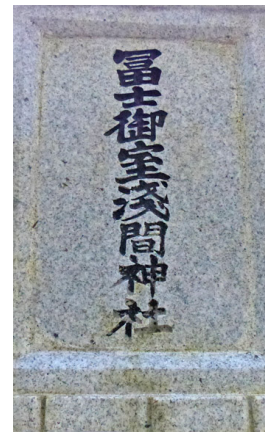 冨士御室淺間神社